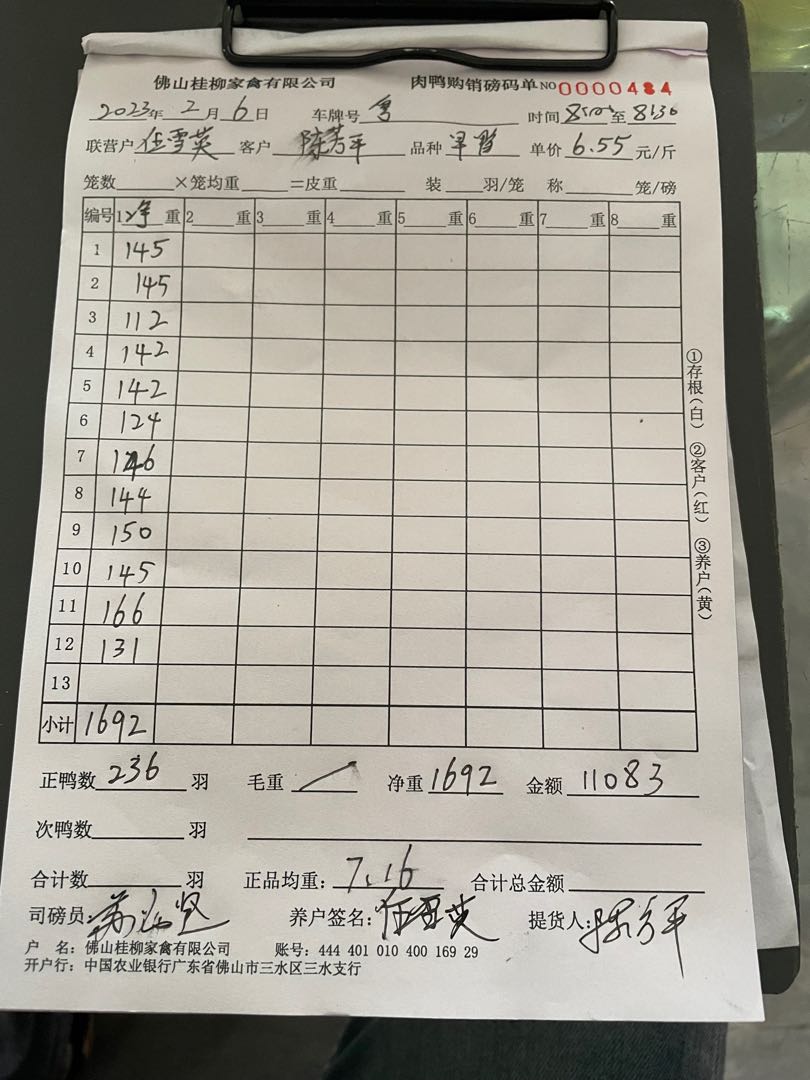 佛山桂柳家禽有限公司 肉鸭购销磅码单 NO 0000484
2023年 2月 6日 车牌号 时间 至 8:30
联营户 伍雪英 客户 陈芳平 品种 单价 6.55 元/斤
笼数 ×笼均重 =皮重 装 羽/笼 称 笼/磅
编号 1 净 重 2 重 3 重 4 重 5 重 6 重 7 重 8 重
1 145
2 145
3 112
4 142
5 142
6 124
7 146
8 144
9 150
10 145
11 166
12 131
13
小计 1692
①存根(白) ②客户(红) ③养户(黄)
正鸭数 236 羽 毛重 净重 1692 金额 11083
次鸭数 羽
合计数 羽 正品均重: 7.16 合计总金额
司磅员: 养户签名: 伍雪英 提货人: 陈芳平
户 名: 佛山桂柳家禽有限公司 账号: 444 401 010 400 169 29
开户行: 中国农业银行广东省佛山市三水区三水支行